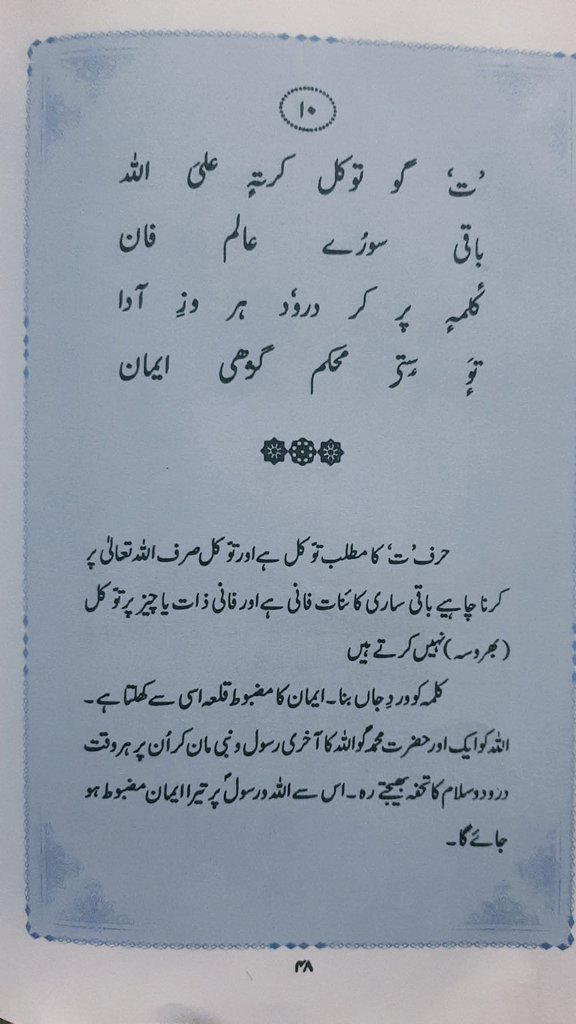 ۱۰
’ت‘ گو توکل کرتہٕ علیٰ اللہ
باقی سورُے عالم فان
کٔلمہٕ پر کر دروٗد ہر وزِ آدا
توٚ سٟتۍ محکم گژھی ایمان
حرف ’ت‘ کا مطلب توکّل ہے اور توکّل صرف اللہ تعالیٰ پر
کرنا چاہیے باقی ساری کائنات فانی ہے اور فانی ذات یا چیز پر توکّل
(بھروسہ) نہیں کرتے ہیں
کلمہ کو وردِ جاں بنا۔ ایمان کا مضبوط قلعہ اسی سے کھلتا ہے۔
اللہ کو ایک اور حضرت محمدؐ کو اللہ کا آخری رسول و نبی مان کر اُن پر ہر وقت
درود و سلام کا تحفہ بھیجتے رہ۔ اس سے اللہ و رسولؐ پر تیرا ایمان مضبوط ہو
جائے گا۔
۴۸